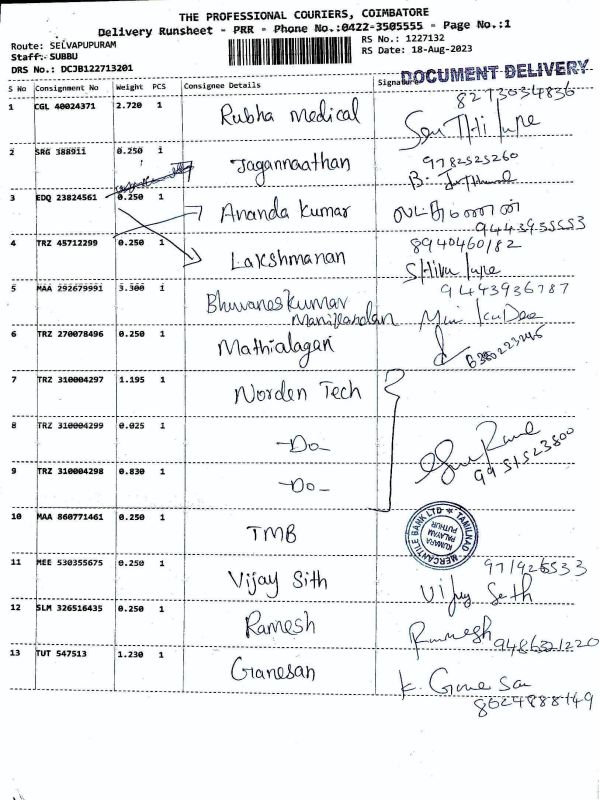 THE PROFESSIONAL COURIERS, COIMBATORE
Delivery Runsheet - PRR - Phone No.:0422-3505555 - Page No.:1
Route: SELVAPUPURAM
RS No.: 1227132
Staff: SUBBU
RS Date: 18-Aug-2023
DRS No.: DCJB122713201
DOCUMENT DELIVERY
S No Consignment No Weight PCS Consignee Details Signature
1 CGL 40024371 2.720 1 Rubha Medical 8273034836
2 SRG 388911 0.250 1 Jagannaathan 9782525260
3 EDQ 23824561 0.250 1 Ananda Kumar 9443955553
4 TRZ 45712299 0.250 1 Lakshmanan 8940460182
5 MAA 292679991 3.300 1 Bhuvaneskumar Manikandan 9443936787
6 TRZ 270078496 0.250 1 Mathialagan
7 TRZ 310004297 1.195 1 Norden Tech
8 TRZ 310004299 0.025 1 -Do-
9 TRZ 310004298 0.830 1 -Do- 9951523800
10 MAA 860771461 0.250 1 TMB
TAMILNAD MERCANTILE BANK LTD
KUMARA PALAYAM PUTHUR
11 MEE 530355675 0.250 1 Vijay Sith Vijay Seth
12 SLM 326516435 0.250 1 Ramesh Rammesh
13 TUT 547513 1.230 1 Ganesan K. Gane San
8624888149